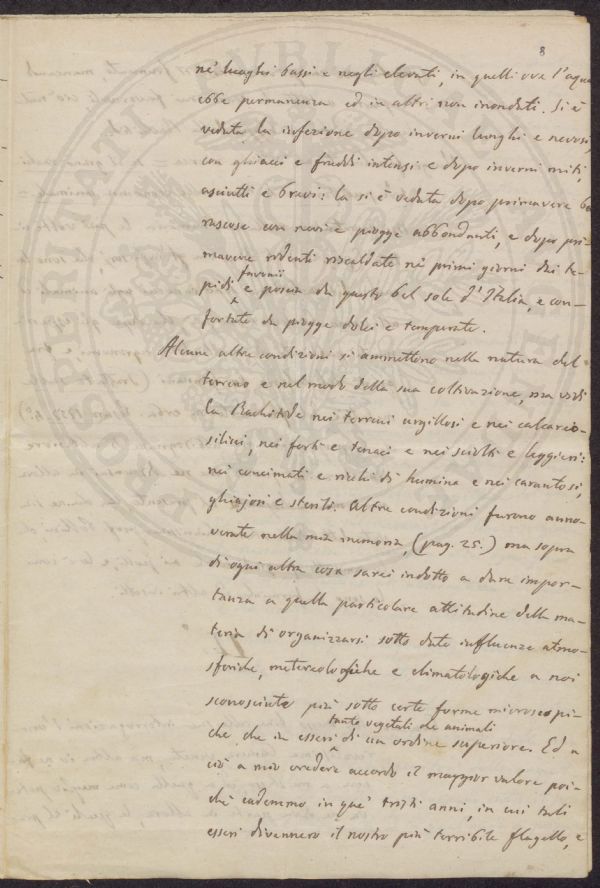 8
ne' luoghi bassi e negli elevati, in quelli ove l'acqua
ebbe permanenza ed in altri non inondati. Si è
veduta la infezione dopo inverni lunghi e nevosi,
con ghiacci e freddi intensi e dopo inverni miti,
asciutti e brevi: la si è veduta dopo primavere bur
rascose con nevi e piogge abbondanti, e dopo pri
mavere ridenti riscaldate ne' primi giorni dai te-
pidi favonii e poscia da questo bel sole d'Italia, e con-
fortate da piogge dolci e temperate.
Alcune altre condizioni si ammettono nella natura del
terreno e nel modo della sua coltivazione, ma vidi
la nei terreni argillosi e nei calcareo-
silicei, nei forti e tenaci e nei sciolti e leggieri:
nei concimati e ricchi di humina e nei carantosi,
ghiajosi e sterili. Altre condizioni furono anno-
verate nella mia memoria, (pag. 25.) ma sopra
di ogni altra cosa sarei indotto a dare impor-
tanza a quella particolare attitudine della ma-
teria di organizzarsi sotto date influenze atmo-
sferiche, metereologiche e climatologiche a noi
sconosciute più sotto certe forme microscopi-
che che in esseri tanto vegetali che animali di un ordine superiore. Ed a
ciò a mio credere accordo il maggior valore poi-
chè cademmo in que' tristi anni, in cui tali
esseri divennero il nostro più terribile flagello, e